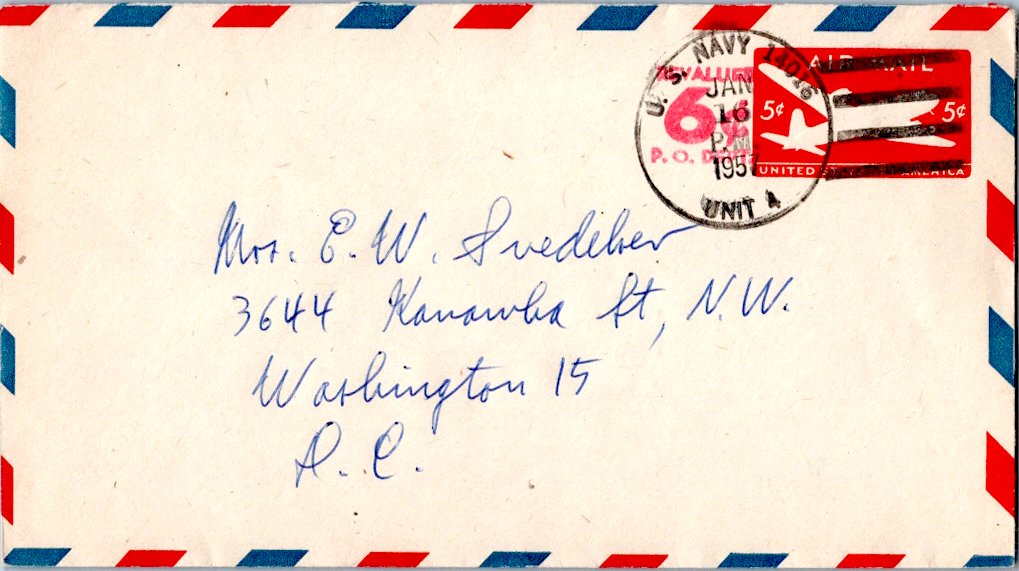 U. S. NAVY 14016
JAN
16
P.M
1957
UNIT 4
REVALUED
6¢
P. O. DEPT.
AIR MAIL
5¢ 5¢
UNITED STATES OF AMERICA
Mrs. E. W. Svedeber
3644 Kanawha St, N.W.
Washington 15
D. C.